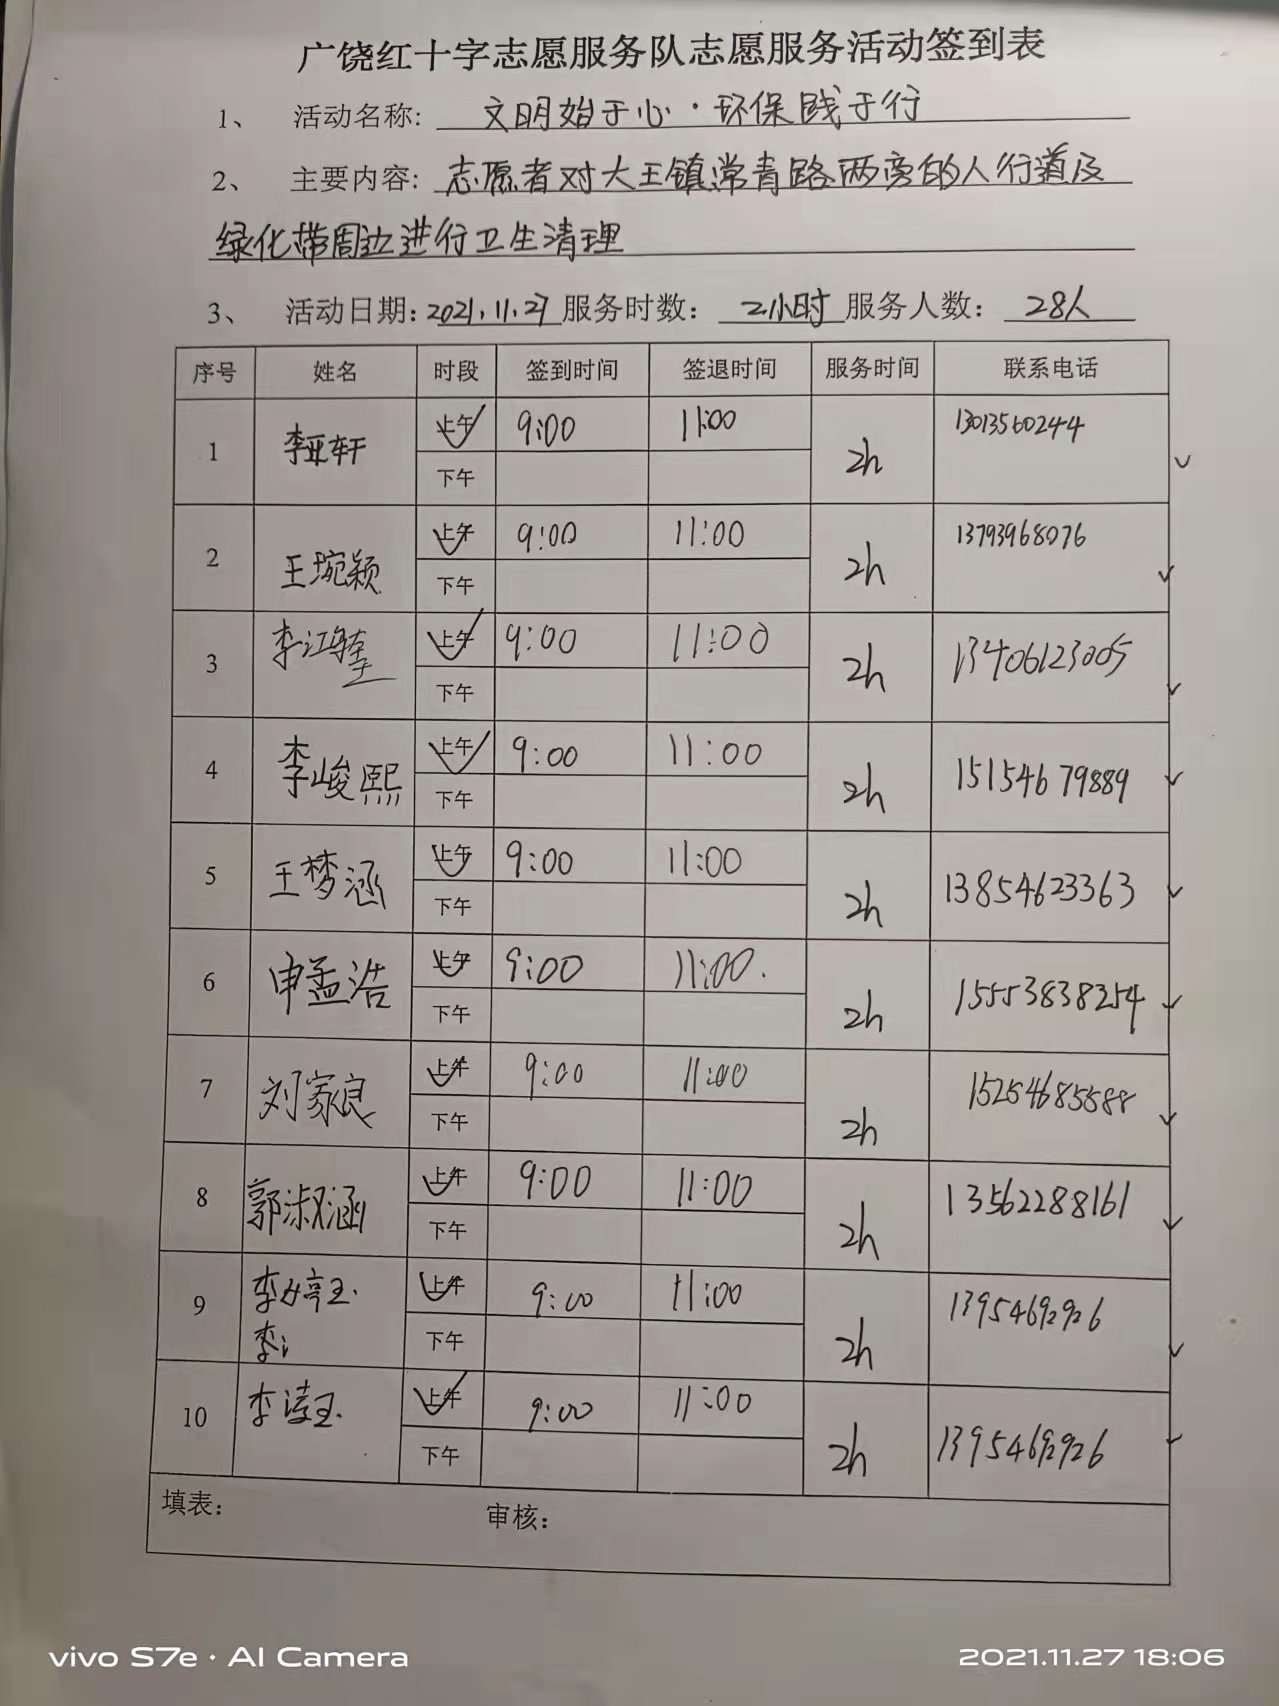 广饶红十字志愿服务队志愿服务活动签到表
1、 活动名称: 文明始于心·环保践于行
2、 主要内容: 志愿者对大王镇常青路两旁的人行道及
绿化带周边进行卫生清理
3、 活动日期: 2021.11.27 服务时数: 2小时 服务人数: 28人
序号 姓名 时段 签到时间 签退时间 服务时间 联系电话
1 李亚轩 上午 9:00 11:00 2h 13013560244
下午
2 王琬颖 上午 9:00 11:00 2h 13793968076
下午
3 上午 9:00 11:00 2h 13406123005
下午
4 李峻熙 上午 9:00 11:00 2h 15154679889
下午
5 王梦涵 上午 9:00 11:00 2h 13854623363
下午
6 申孟浩 上午 9:00 11:00. 2h 15553838254
下午
7 刘家良 上午 9:00 11:00 2h 15254685588
下午
8 郭淑涵 上午 9:00 11:00 2h 13562288161
下午
9 李婷玉. 上午 9:00 11:00 2h 13954692926
李 下午
10 上午 9:00 11:00 2h 13954692926
下午
填表: 审核:
vivo S7e · AI Camera 2021.11.27 18:06